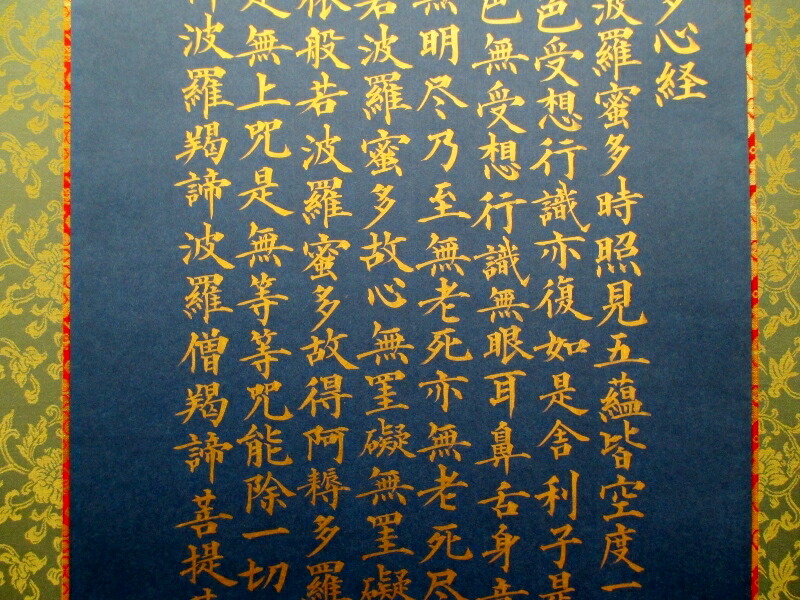 心経
波羅蜜多時照見五蘊皆空度一
色受想行識亦復如是舎利子是
無受想行識無眼耳鼻舌身意
無明尽乃至無老死亦無老死尽
若波羅蜜多故心無罣礙無罣礙
般若波羅蜜多故得阿耨多羅
是無上呪是無等等呪能除一切
波羅羯諦波羅僧羯諦菩提